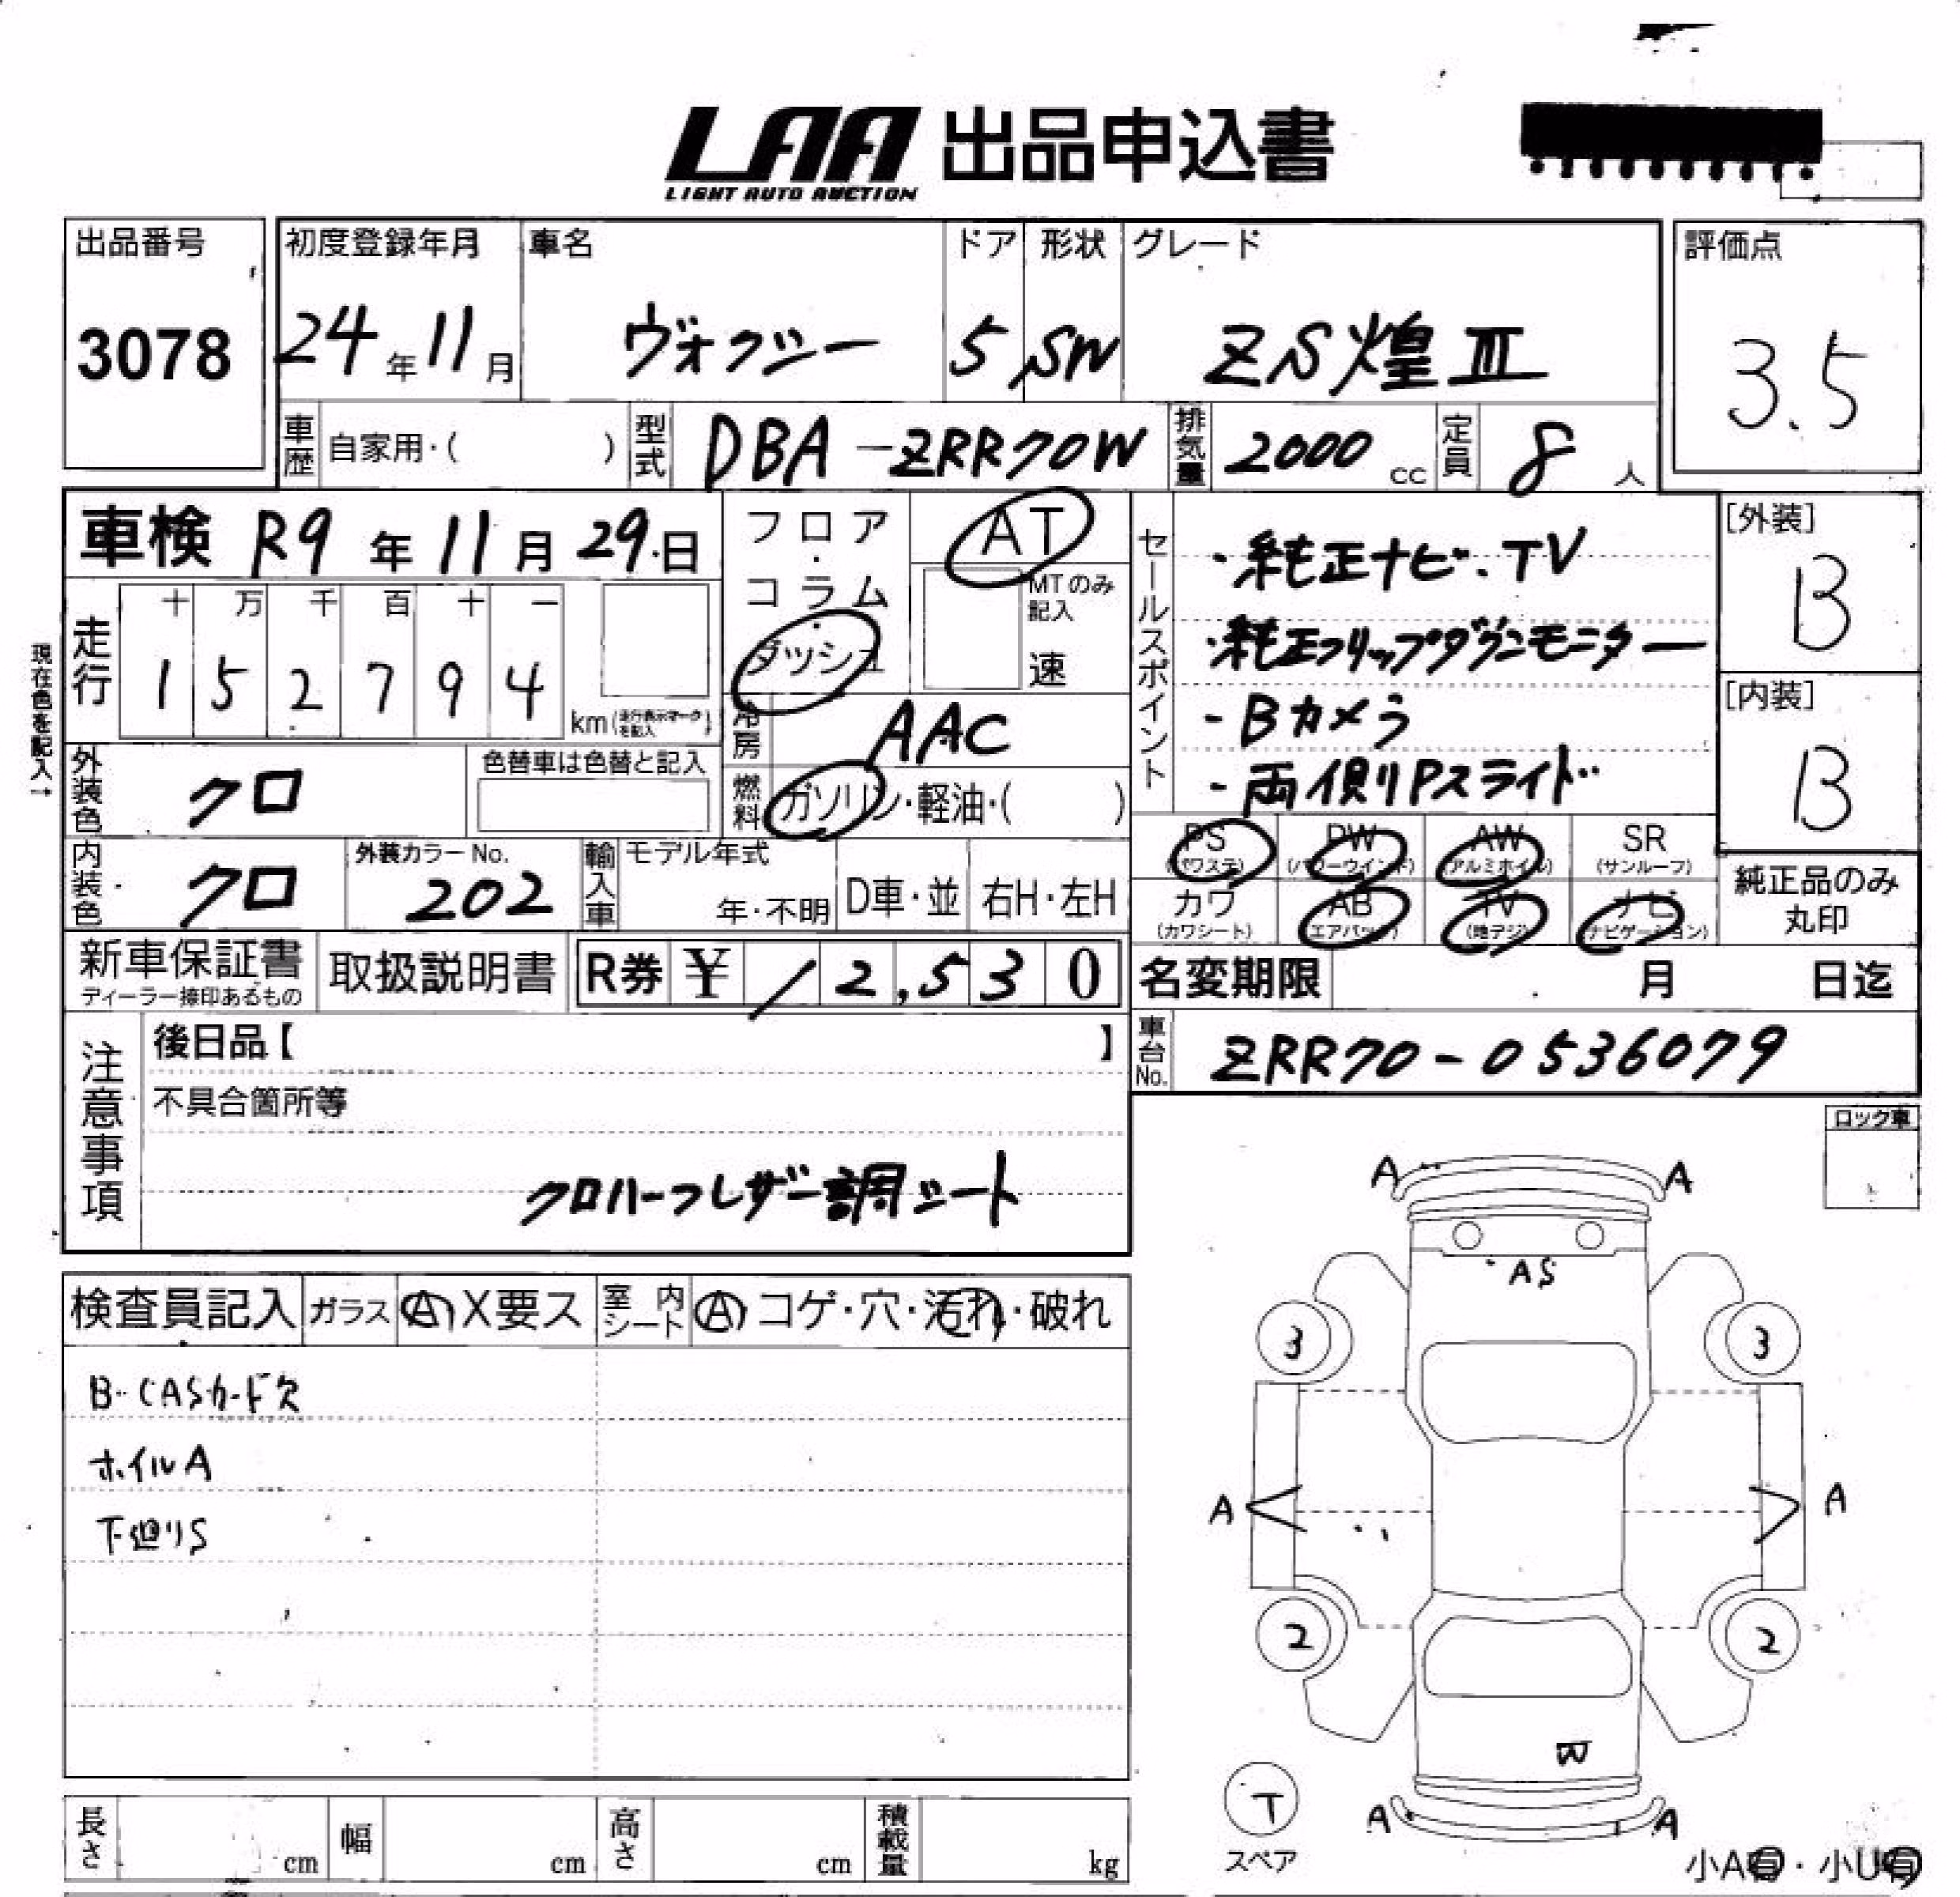 LAA 出品申込書
LIGHT AUTO AUCTION
出品番号
3078
初度登録年月
24年11月
車名
ヴォクシー
ドア
5
形状
SW
グレード
ZS煌Ⅲ
評価点
3.5
車歴 自家用・( )
型式 DBA-ZRR70W
排気量 2000 cc
定員 8 人
車検 R9年11月29日
フロア・コラム・ダッシュ
AT
MTのみ記入
速
セールスポイント
・純正ナビ.TV
・純正フリップダウンモニター
-Bカメラ
-両側Pスライド
[外装]
B
[内装]
B
現在色を記入→
走行
十 万 千 百 十 一
1 5 2 7 9 4
km(走行表示マークを記入)
冷房 AAC
燃料 ガソリン・軽油・( )
外装色 クロ
色替車は色替と記入
内装色 クロ
外装カラーNo.
202
輸入車
モデル年式
年・不明
D車・並
右H・左H
PS (パワステ)
PW (パワーウインド)
AW (アルミホイル)
SR (サンルーフ)
カワ (カワシート)
AB (エアバック)
TV (地デジ)
ナビ (ナビゲーション)
純正品のみ
丸印
新車保証書
ディーラー捺印あるもの
取扱説明書
R券 ¥ /2,530
名変期限 月 日迄
車台No. ZRR70-0536079
注意事項
後日品【 】
不具合箇所等
クロハーフレザー調シート
ロック車
検査員記入
ガラス A X要ス
室内シート A コゲ・穴・汚れ・破れ
B-CASカード欠
ホイルA
下廻りS
A A
AS
3 3
A A
2 2
B
T
スペア
A A
小A有・小U有
長さ cm
幅 cm
高さ cm
積載量 kg